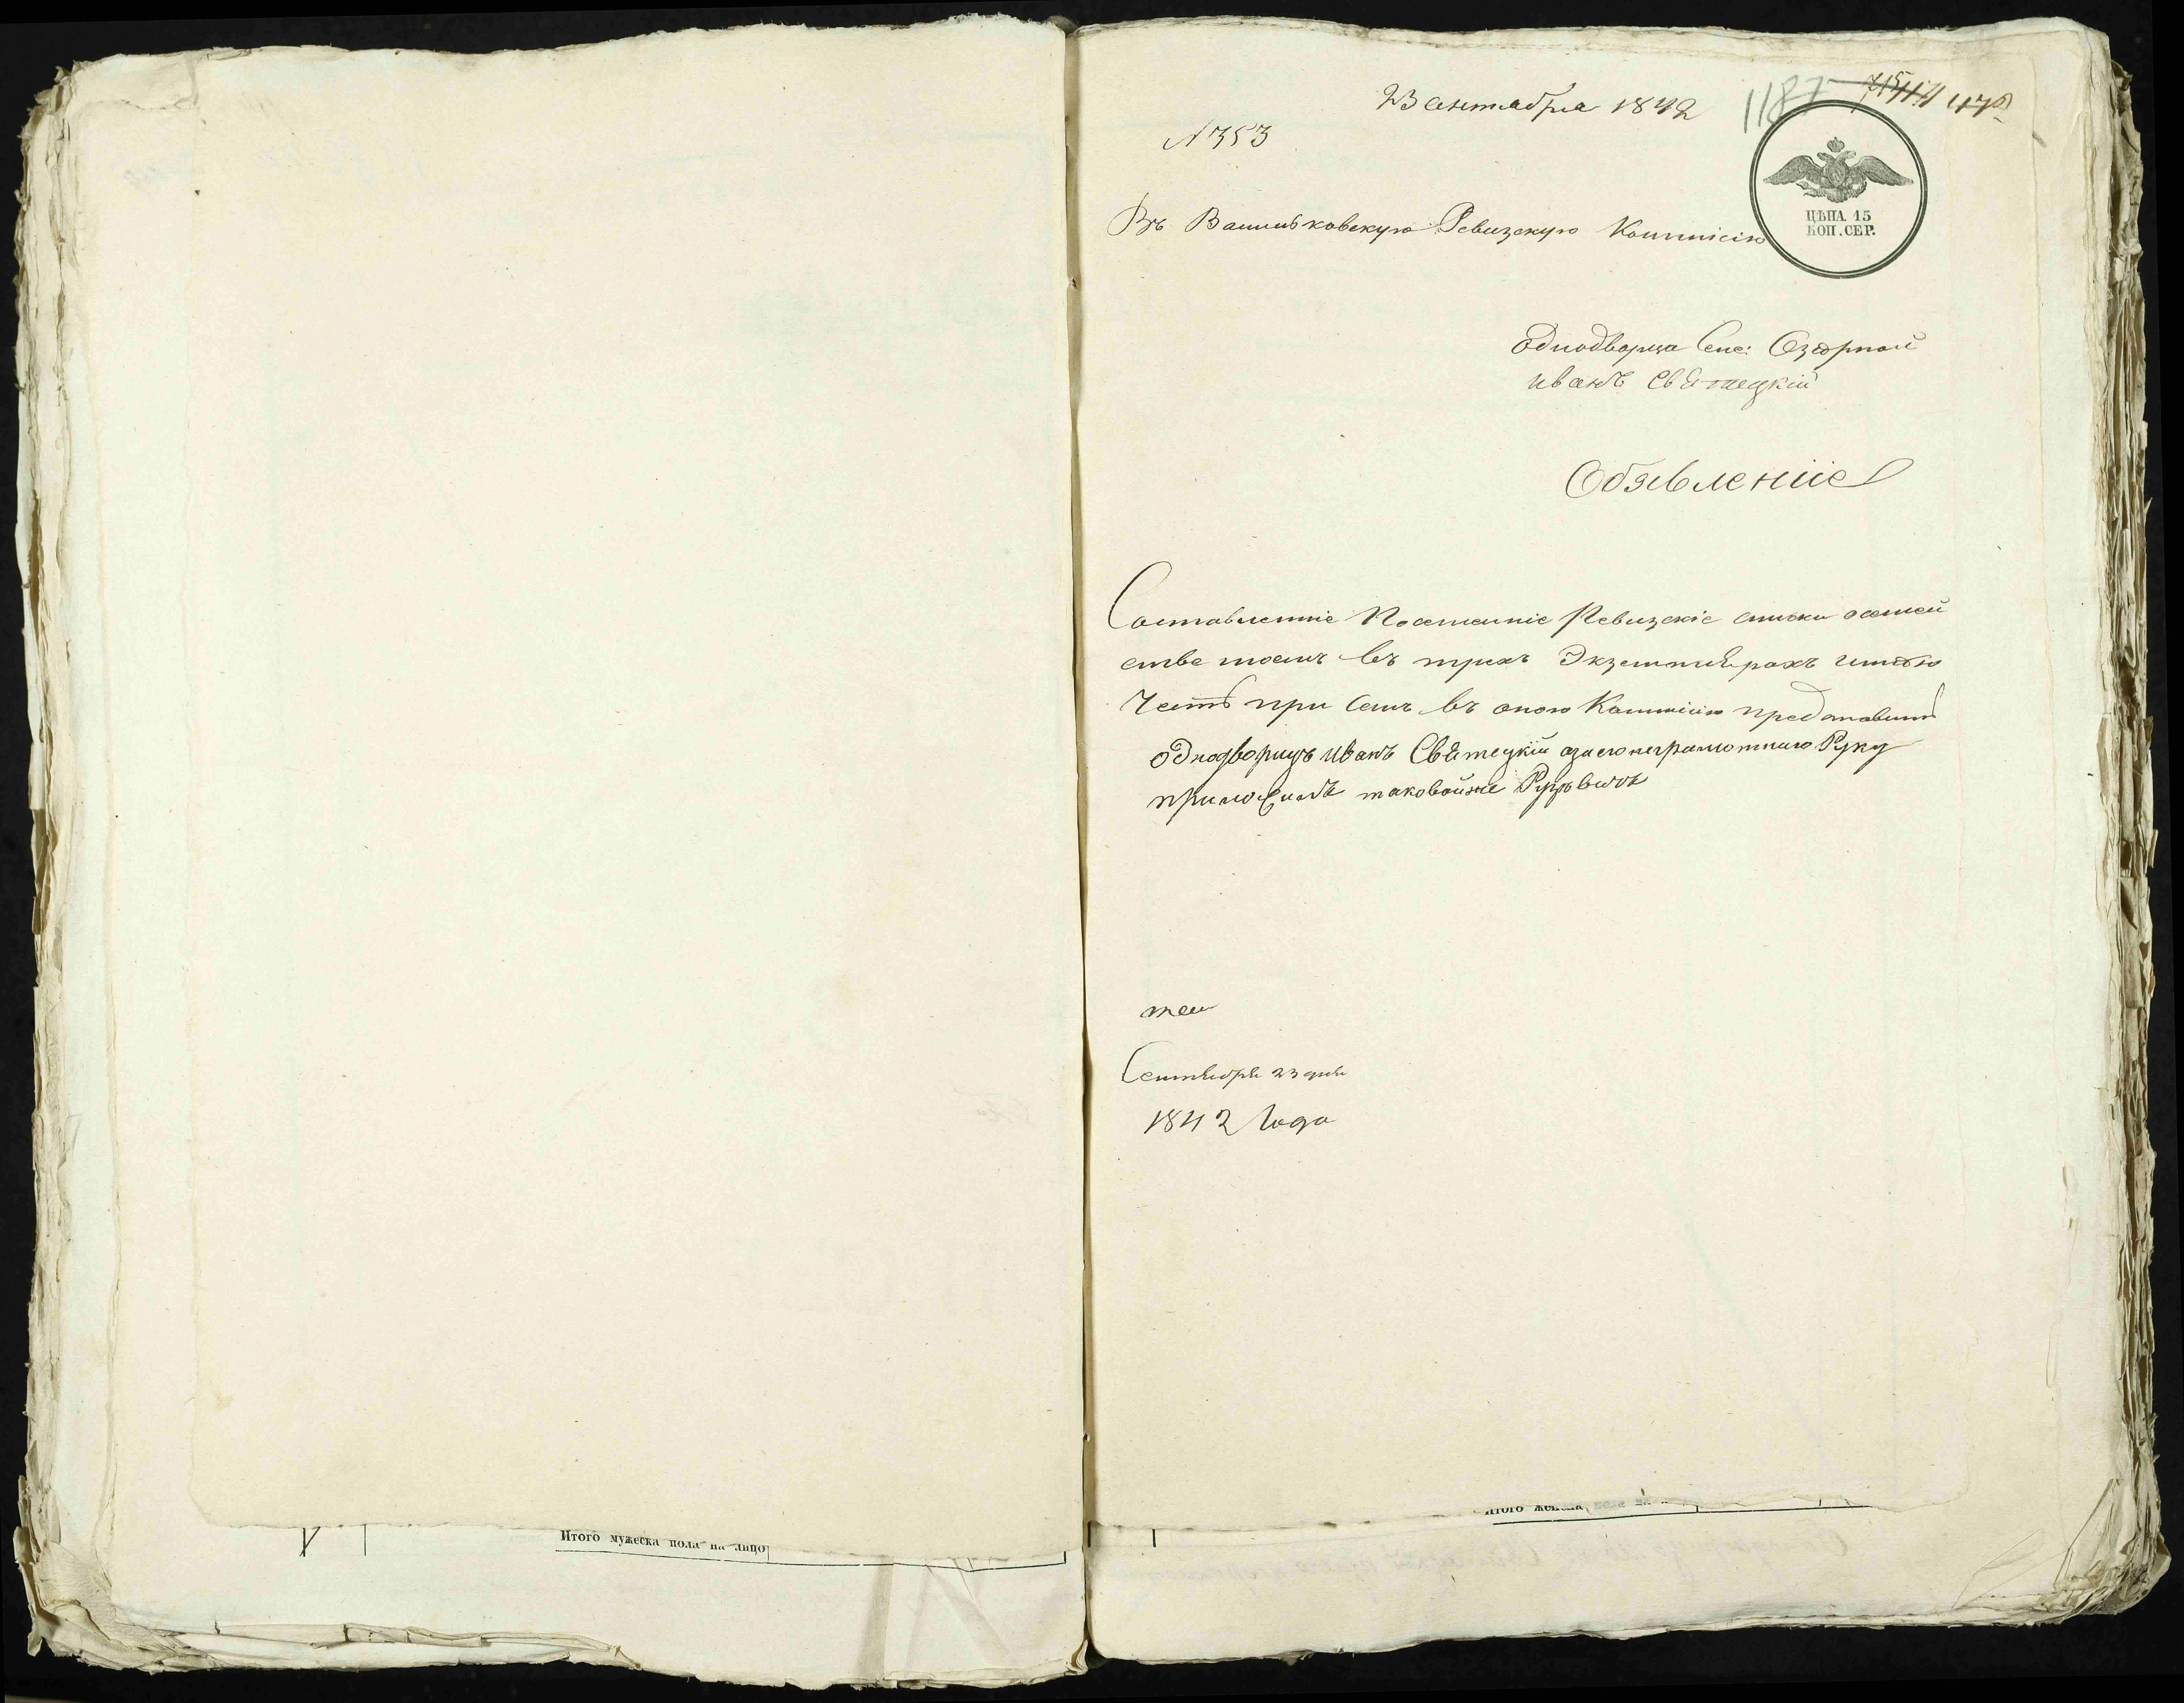 23 Сентабра 1842
1187
№ 353
ЦѢНА 15
КОП. СЕР.
Въ Васильковскую Ревизскую Коммісію
Однодворца Сел: Озорной
Иванъ Святецкій
Обявленіе
Составленніе Посеменніе Ревизскіе списки осемей
стве моемъ въ трихъ Экземплярахъ имѣю
Честь при семъ въ оною Коммісію представить
однодворицъ Иванъ Святецкій азаего неграмотнаго Руку
приложилъ таковойже
Сентября 23 дня
1842 Года
Итого мужеска пола на лицо
Итого женска